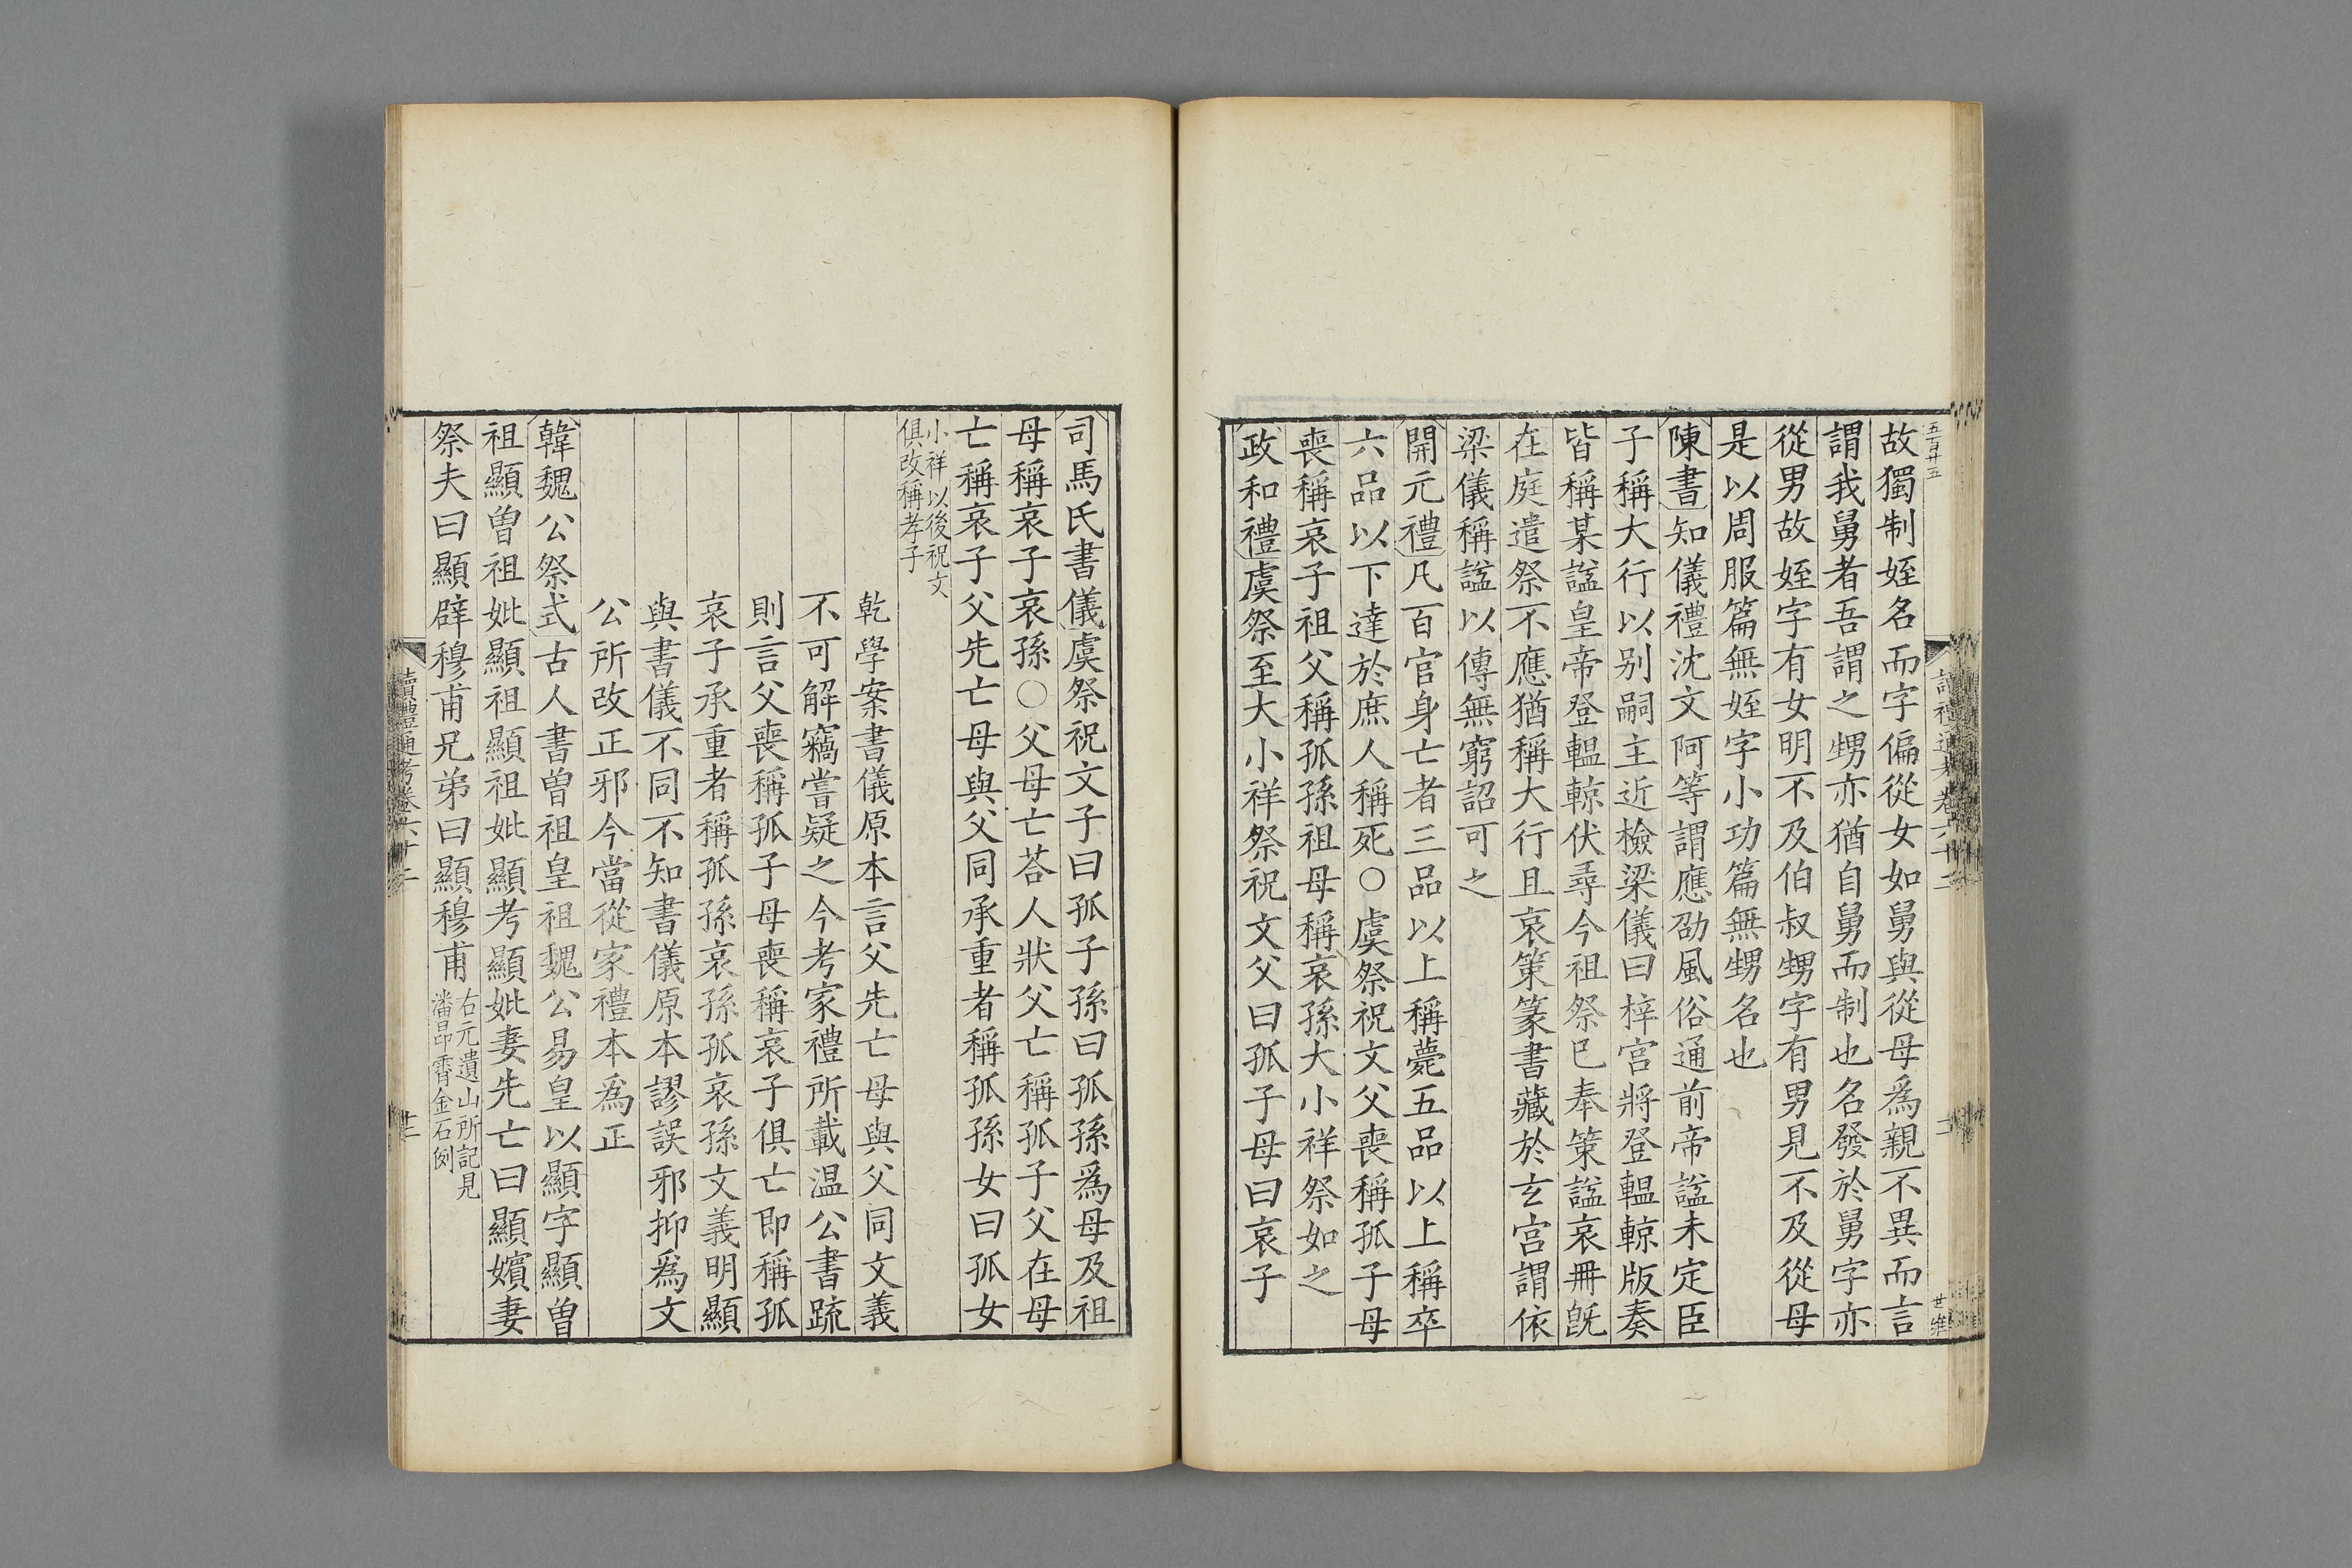 五百廿五
故獨制姪名而字偏從女如舅與從母爲親不異而言
謂我舅者吾謂之甥亦猶自舅而制也名發於舅字亦
從男故姪字有女明不及伯叔甥字有男見不及從母
是以周服篇無姪字小功篇無甥名也
陳書知儀禮沈文阿等謂應劭風俗通前帝諡未定臣
子稱大行以别嗣主近檢梁儀曰梓宮將登輼輬版奏
皆稱某諡皇帝登輼輬伏尋今祖祭已奉策諡哀冊旣
在庭遣祭不應猶稱大行且哀策篆書藏於玄宮謂依
梁儀稱諡以傳無窮詔可之
開元禮凡百官身亡者三品以上稱薨五品以上稱卒
六品以下達於庶人稱死○虞祭祝文父喪稱孤子母
喪稱哀子祖父稱孤孫祖母稱哀孫大小祥祭如之
政和禮虞祭至大小祥祭祝文父曰孤子母曰哀子
司馬氏書儀虞祭祝文子曰孤子孫曰孤孫爲母及祖
母稱哀子哀孫○父母亡荅人狀父亡稱孤子父在母
亡稱哀子父先亡母與父同承重者稱孤孫女曰孤女
小祥以後祝文
俱改稱孝子
乾學案書儀原本言父先亡母與父同文義
不可解竊嘗疑之今考家禮所載温公書䟽
則言父喪稱孤子母喪稱哀子俱亡即稱孤
哀子承重者稱孤孫哀孫孤哀孫文義明顯
與書儀不同不知書儀原本謬誤邪抑爲文
公所改正邪今當從家禮本爲正
韓魏公祭式古人書曾祖皇祖魏公易皇以顯字顯曾
祖顯曾祖妣顯祖顯祖妣顯考顯妣妻先亡曰顯嬪妻
祭夫曰顯辟穆甫兄弟曰顯穆甫
右元遺山所記見
潘昂霄金石例
讀禮通考卷六十二